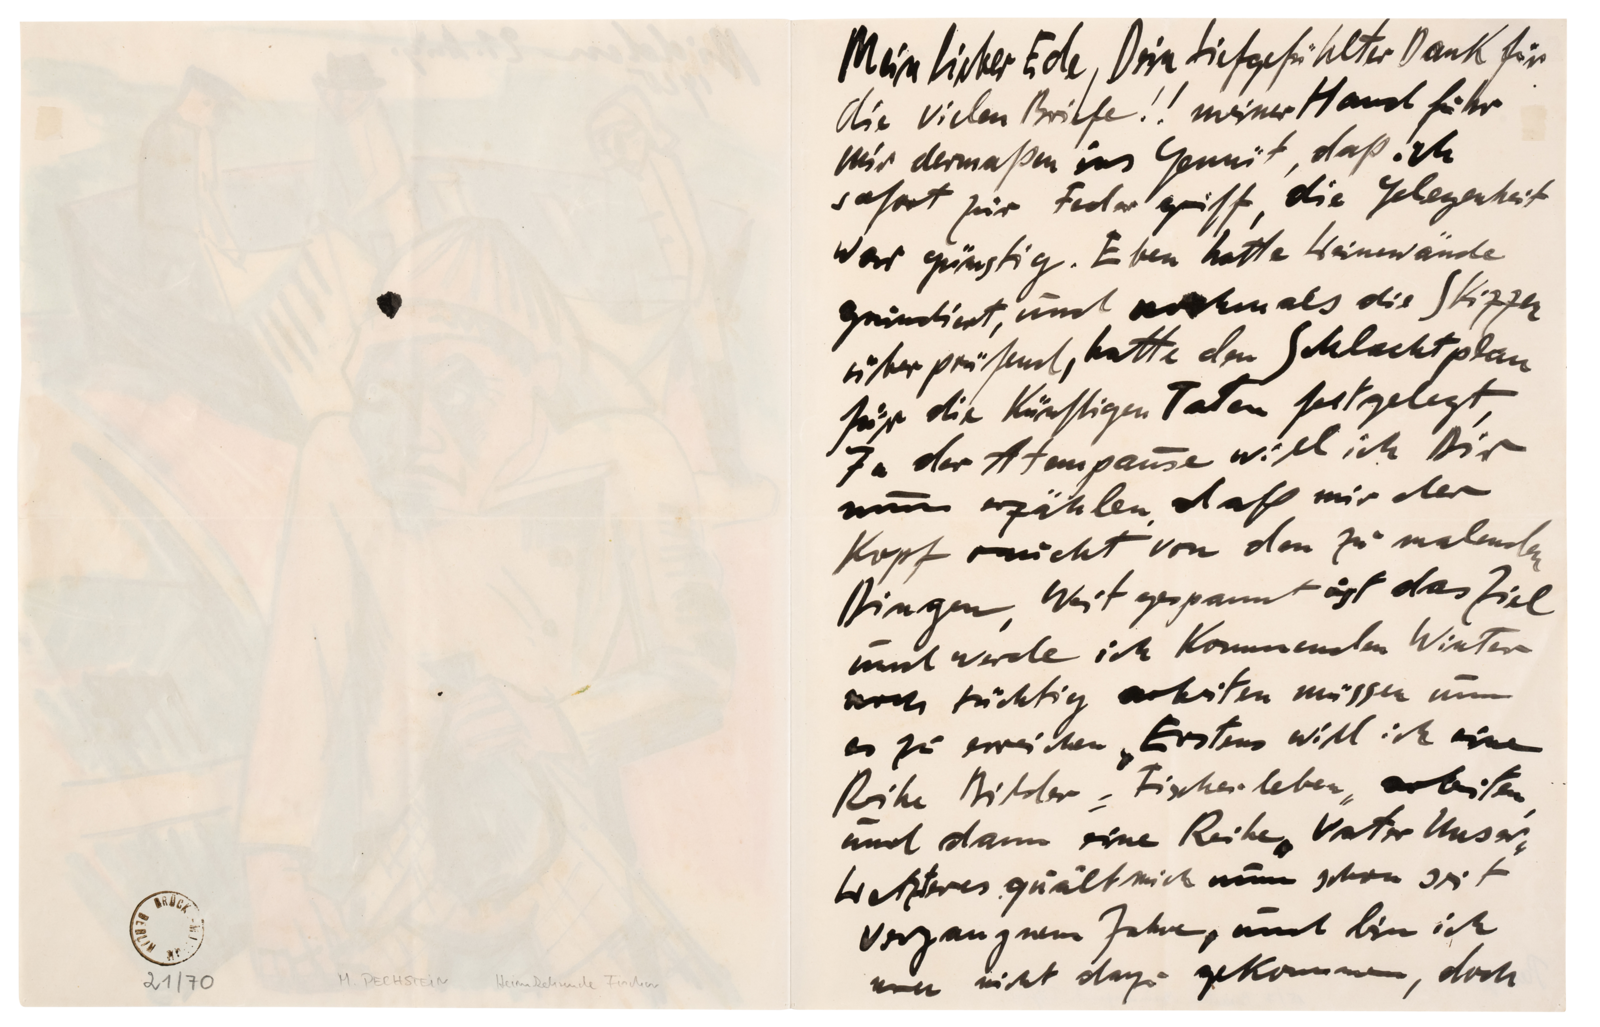 BRÜCKE-MUSEUM BERLIN
21/70
M. PECHSTEIN Heimkehrende Fischer
Mein lieber Ede, Dein tiefgefühlter Dank für
die vielen Briefe!! meiner Hand fuhr
mir dermaßen ins Gemüt, daß ich
sofort zur Feder griff, die Gelegenheit
war günstig. Eben hatte Leinewände
grundiert, und nochmals die Skizzen
überprüfend, hatte den Schlachtplan
für die Künftigen Taten festgelegt,
In der Atempause will ich Dir
nun erzählen, daß mir der
Kopf raucht von den zu malenden
Dingen, Weit gespannt ist das Ziel
und werde ich Kommenden Winter
noch tüchtig arbeiten müssen um
es zu erreichen „Erstens will ich eine
Reihe Bilder = Fischerleben„ arbeiten,
und dann eine Reihe „Vater Unser„
Letzteres quält mich nun schon seit
vergangnem Jahre, und bin ich
nur nicht dazu geKommen, doch